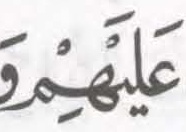 عَلَيْهِمْ وَ